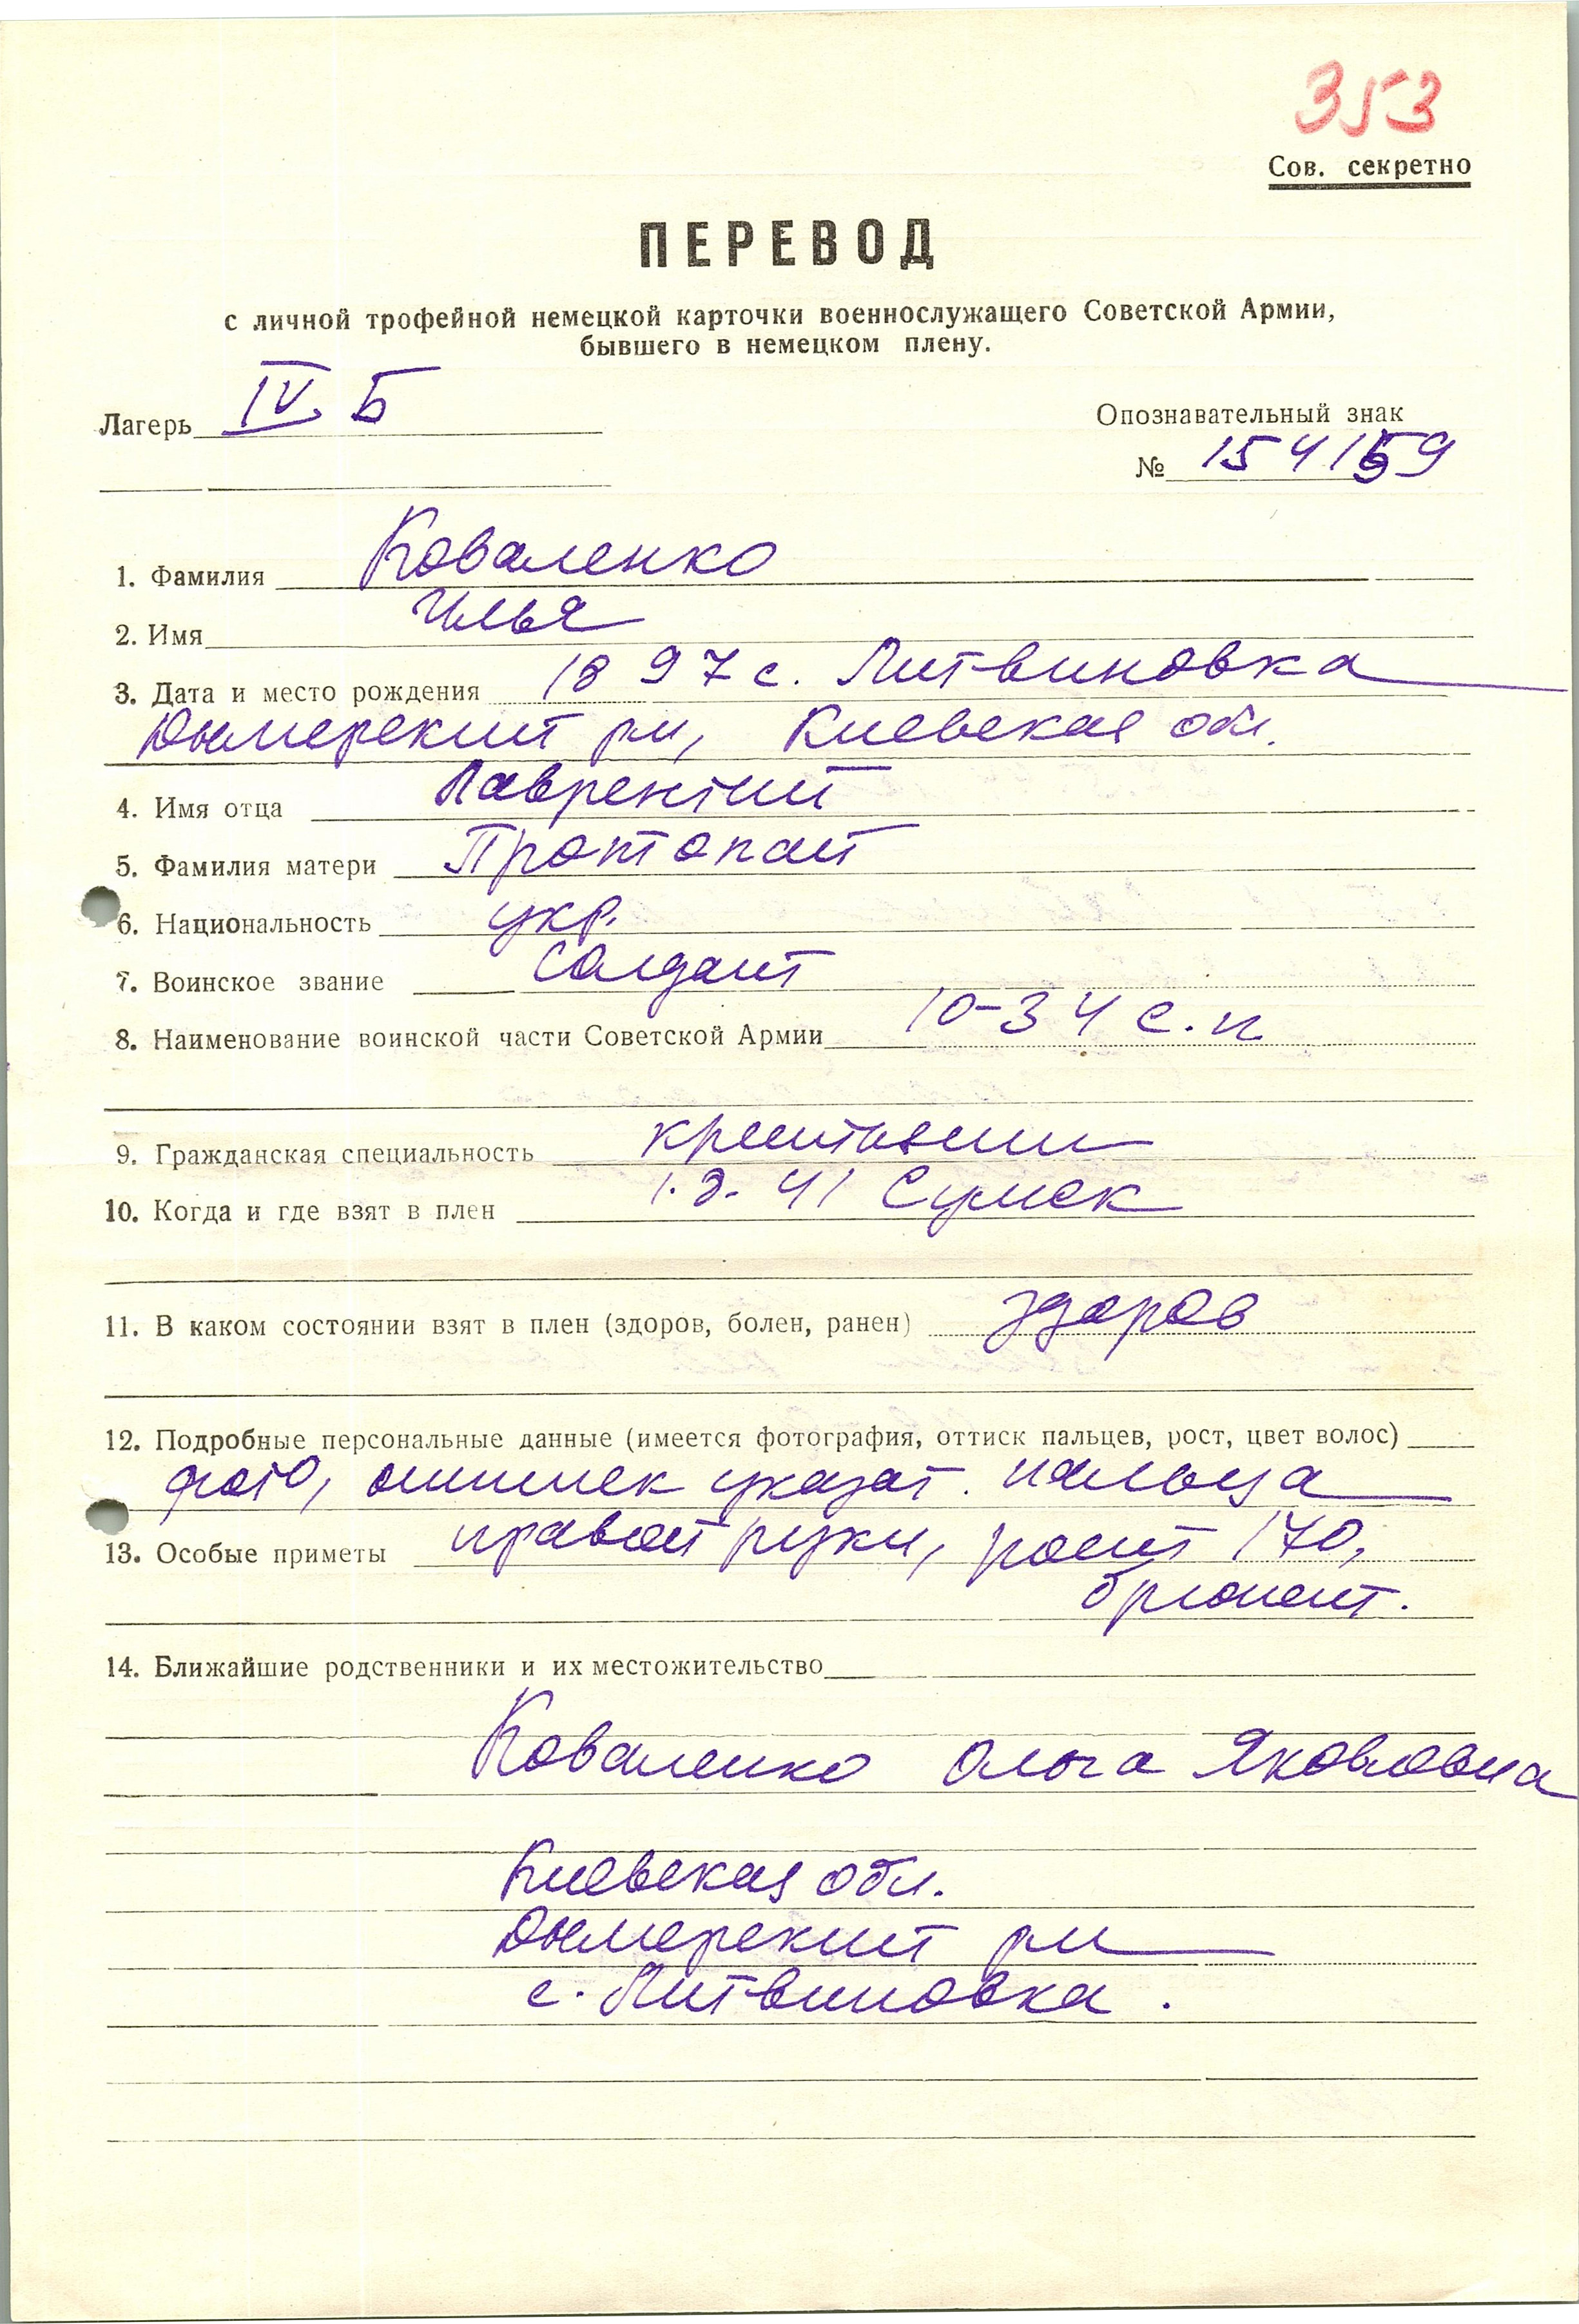 353
Сов. секретно
ПЕРЕВОД
с личной трофейной немецкой карточки военнослужащего Советской Армии,
бывшего в немецком плену.
Лагерь IV Б
Опознавательный знак
№ 154159
1. Фамилия Коваленко
2. Имя Илья
3. Дата и место рождения 1897 с. Литвиновка
Дымерский рн, Киевская обл.
4. Имя отца Лаврентий
5. Фамилия матери Протопай
6. Национальность укр.
7. Воинское звание Солдат
8. Наименование воинской части Советской Армии 10-34 с.п
9. Гражданская специальность крестьянин
10. Когда и где взят в плен 41 Сумск
11. В каком состоянии взят в плен (здоров, болен, ранен) здоров
12. Подробные персональные данные (имеется фотография, оттиск пальцев, рост, цвет волос)
фото, оттиск указат. пальца
13. Особые приметы правой руки, рост 170,
брюнет.
14. Ближайшие родственники и их местожительство
Коваленко Ольга Яковлевна
Киевская обл.
Дымерский рн
с. Литвиновка.